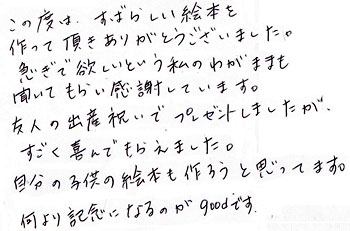 この度は、すばらしい絵本を
作って頂きありがとうございました。
急ぎで欲しいという私のわがままも
聞いてもらい感謝しています。
友人の出産祝いでプレゼントしましたが、
すごく喜んでもらえました。
自分の子供の絵本も作ろうと思ってます。
何より記念になるのがgoodです。